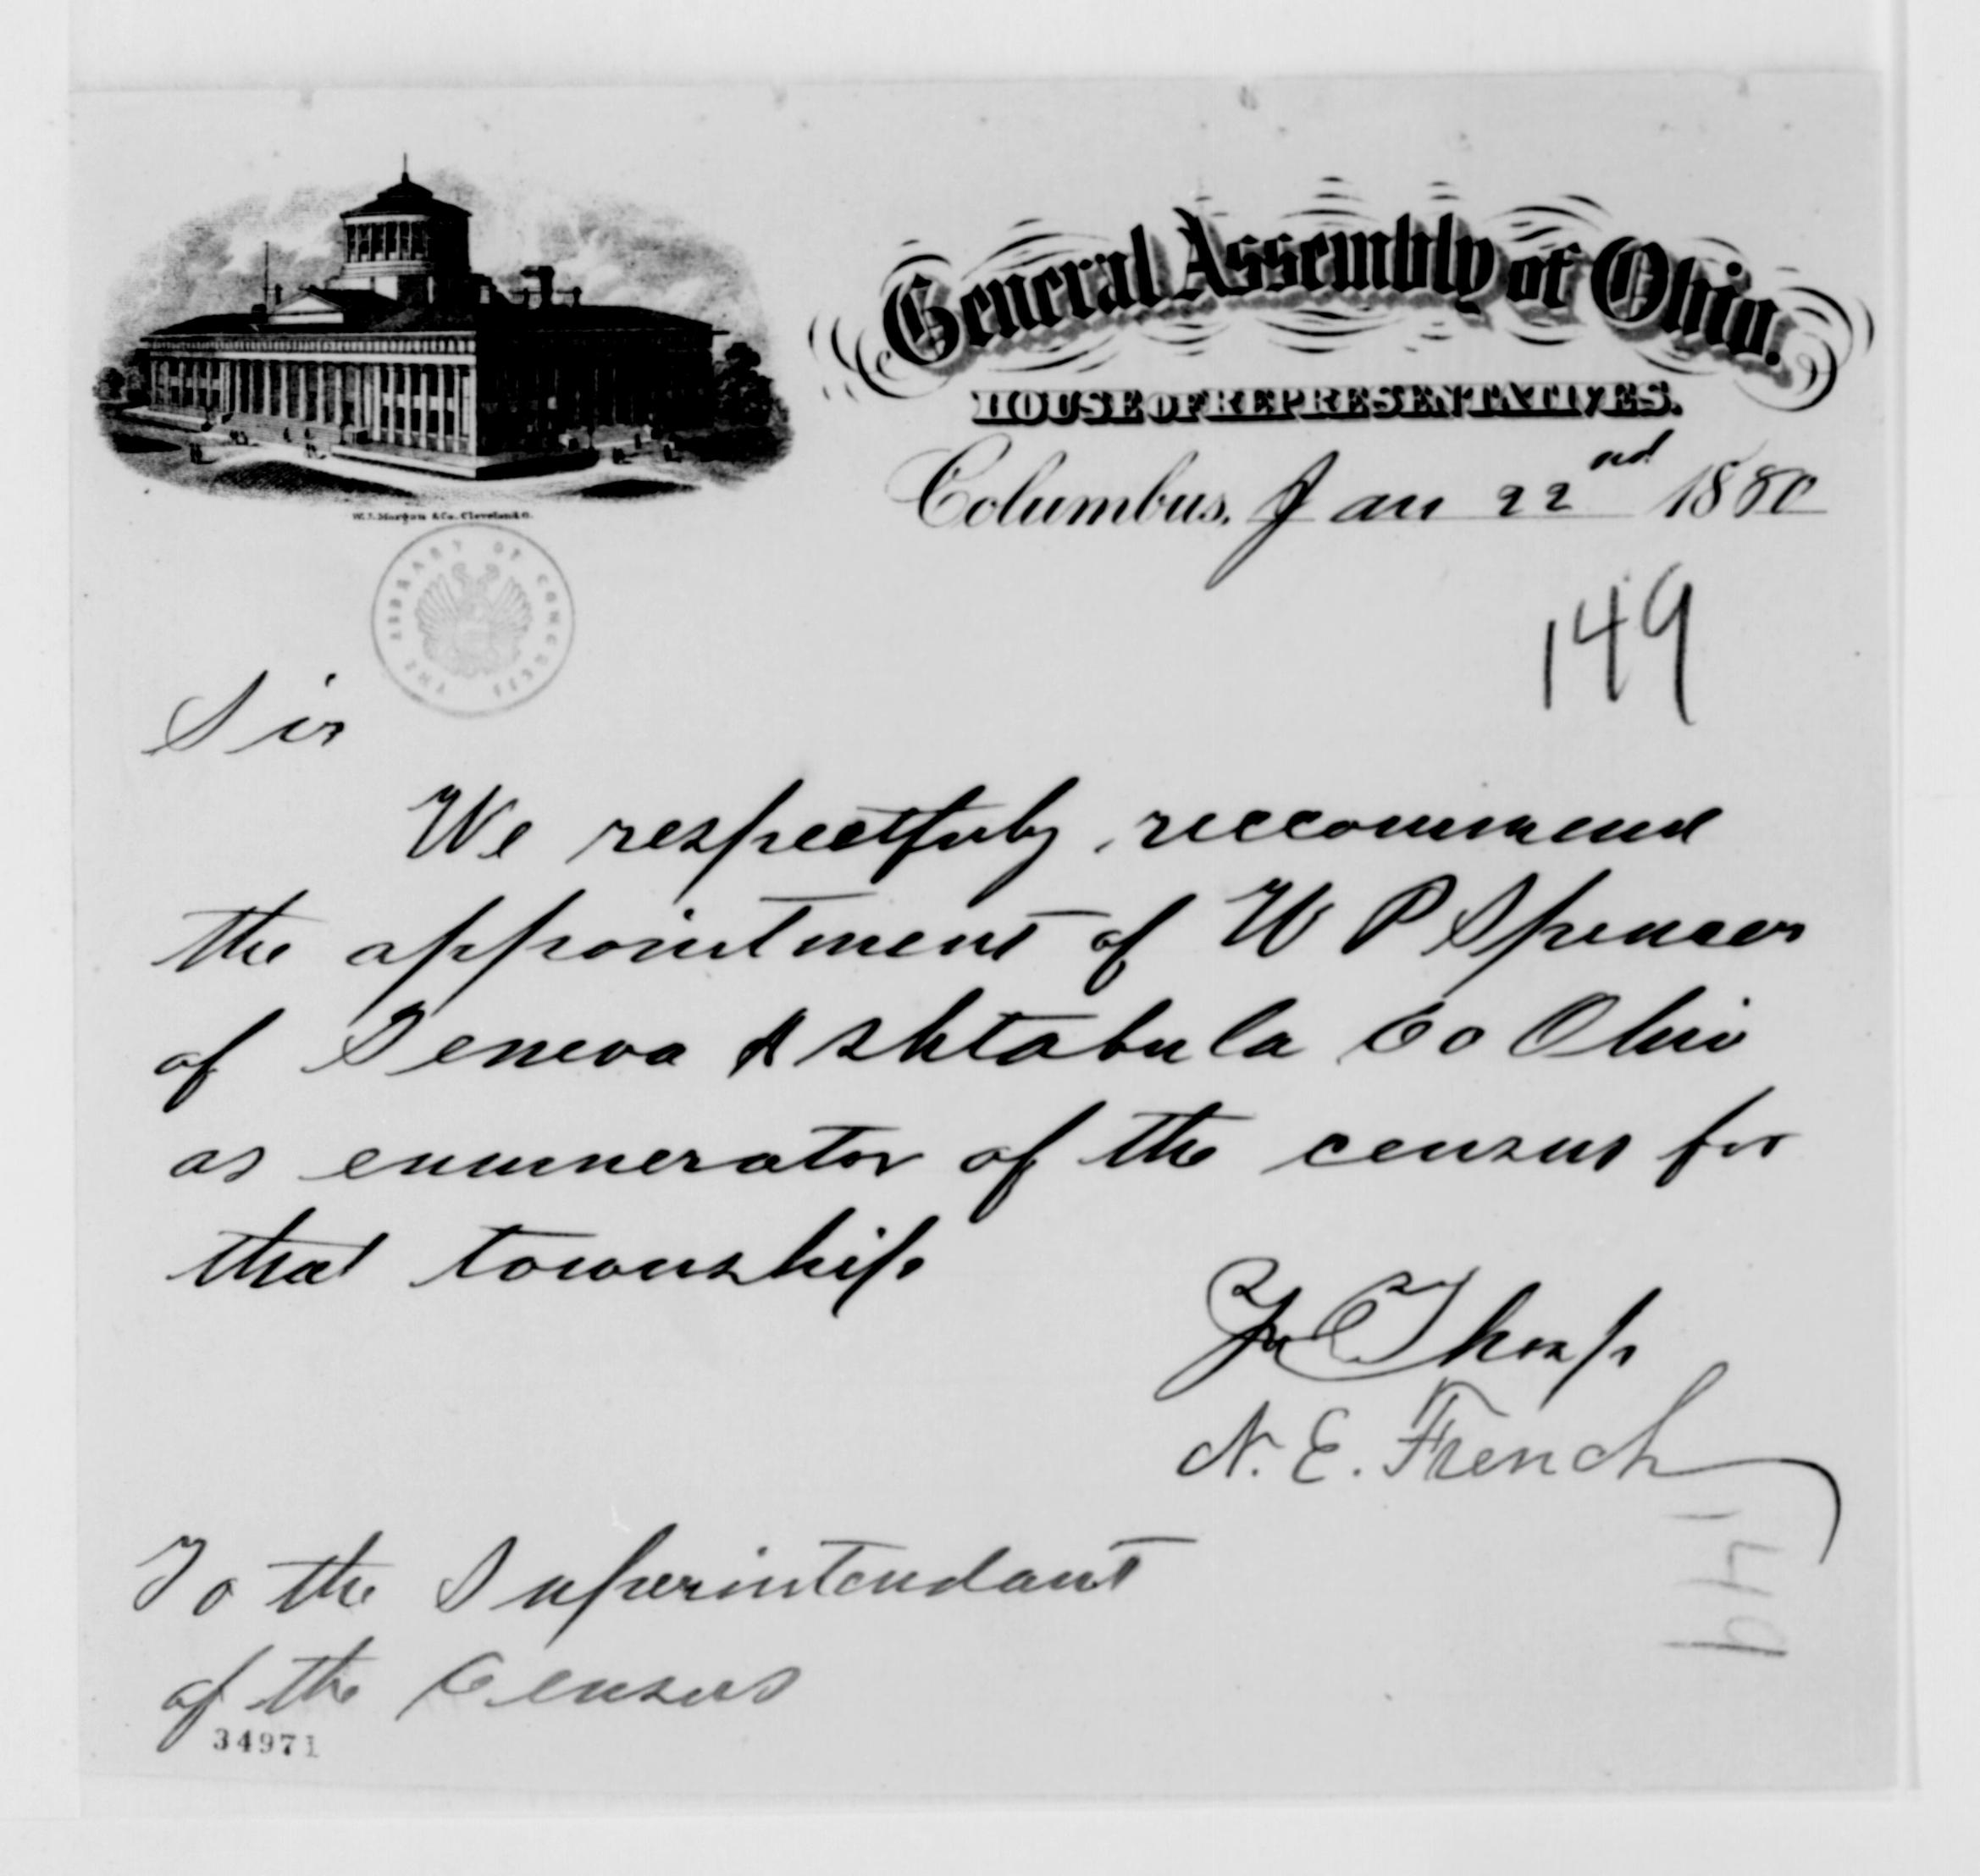 General Assembly of Ohio.
HOUSE OF REPRESENTATIVES.
Columbus, Jan 22nd 1880
W.J. Morgan & Co. Cleveland O.
THE LIBRARY OF CONGRESS
149
Sir
We respectfuly reccommend
the appointment of W P Spencer
of Geneva Ashtabula Co Ohio
as enumerator of the census for
that township
Thorp
N. E. French
149
To the Superintendant
of the Census
34971